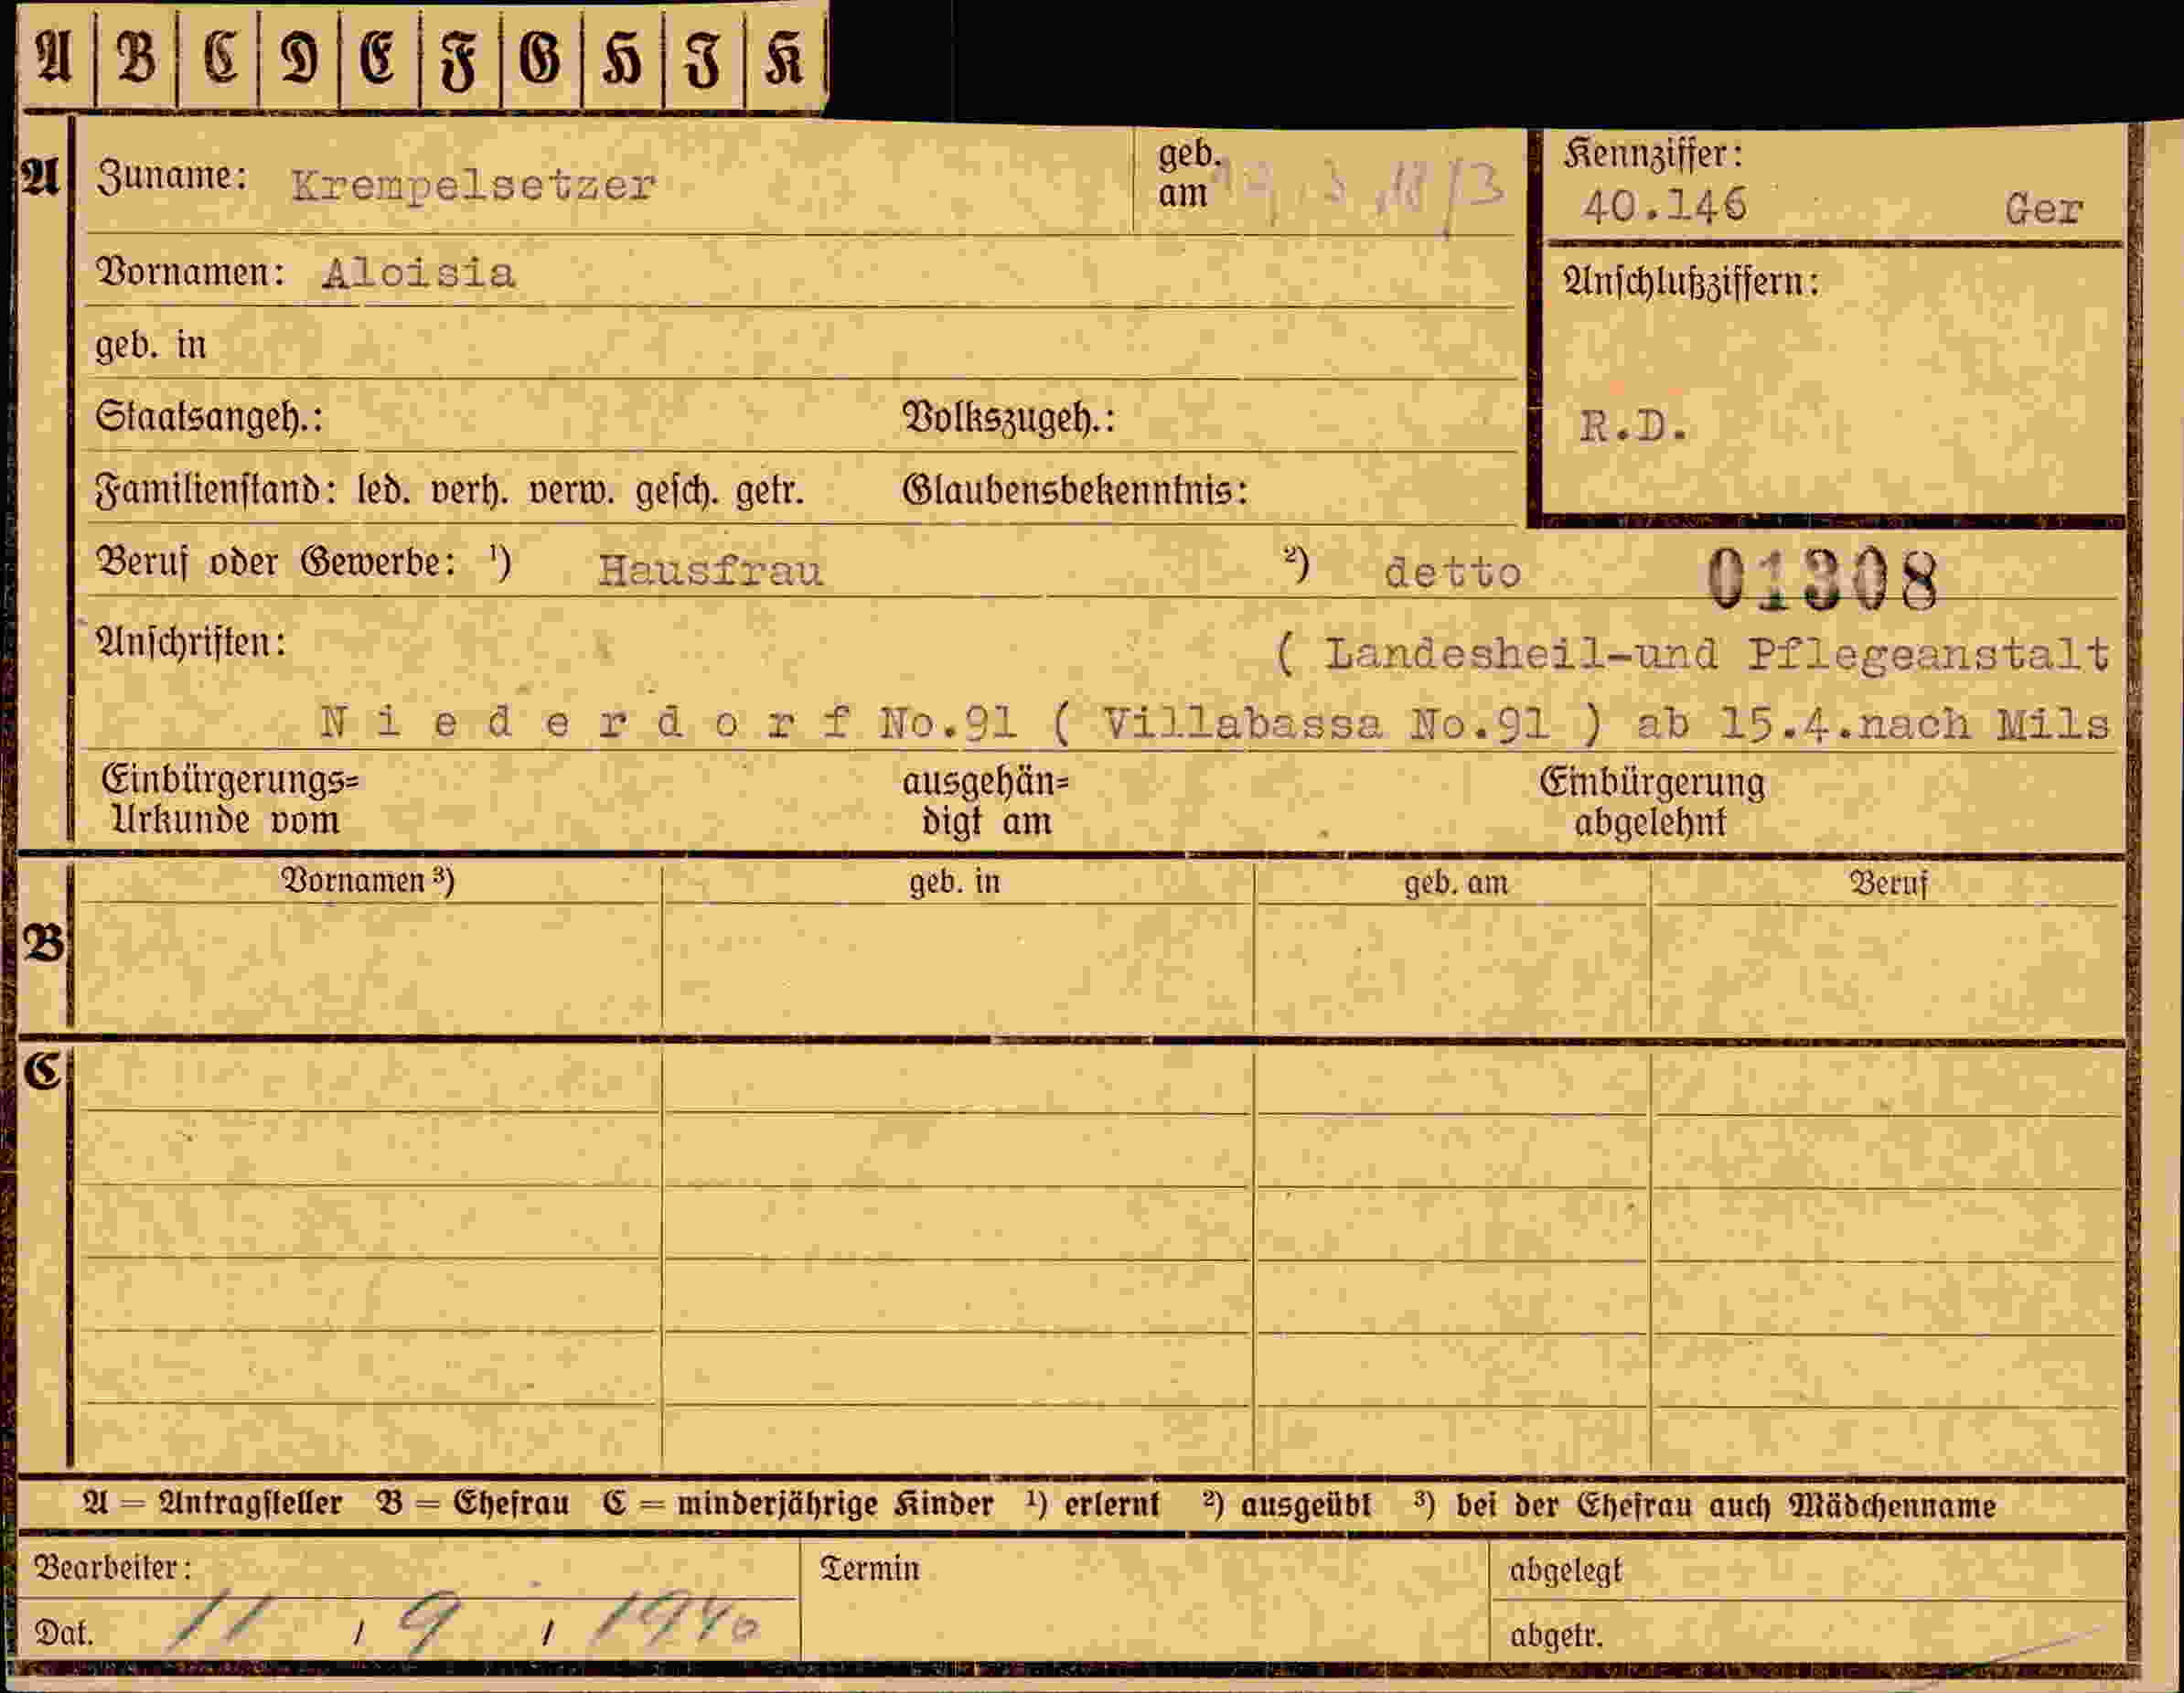 A B C D E F G H I K
A Zuname: Krempelsetzer geb. am Kennziffer:
40.146 Ger
Vornamen: Aloisia Anschlußziffern:
geb. in
Staatsangeh.: Volkszugeh.: R.D.
Familienstand: led. verh. verw. gesch. getr. Glaubensbekenntnis:
Beruf oder Gewerbe: ¹) Hausfrau ²) detto 01308
Anschriften: ( Landesheil-und Pflegeanstalt
N i e d e r d o r f No.91 ( Villabassa No.91 ) ab 15.4.nach Mils
Einbürgerungs= ausgehän= Einbürgerung
Urkunde vom digt am abgelehnt
B Vornamen ³) geb. in geb. am Beruf
C
A = Antragsteller B = Ehefrau C = minderjährige Kinder ¹) erlernt ²) ausgeübt ³) bei der Ehefrau auch Mädchenname
Bearbeiter: Termin abgelegt
Dat. 11 / 9 / 1940 abgetr.